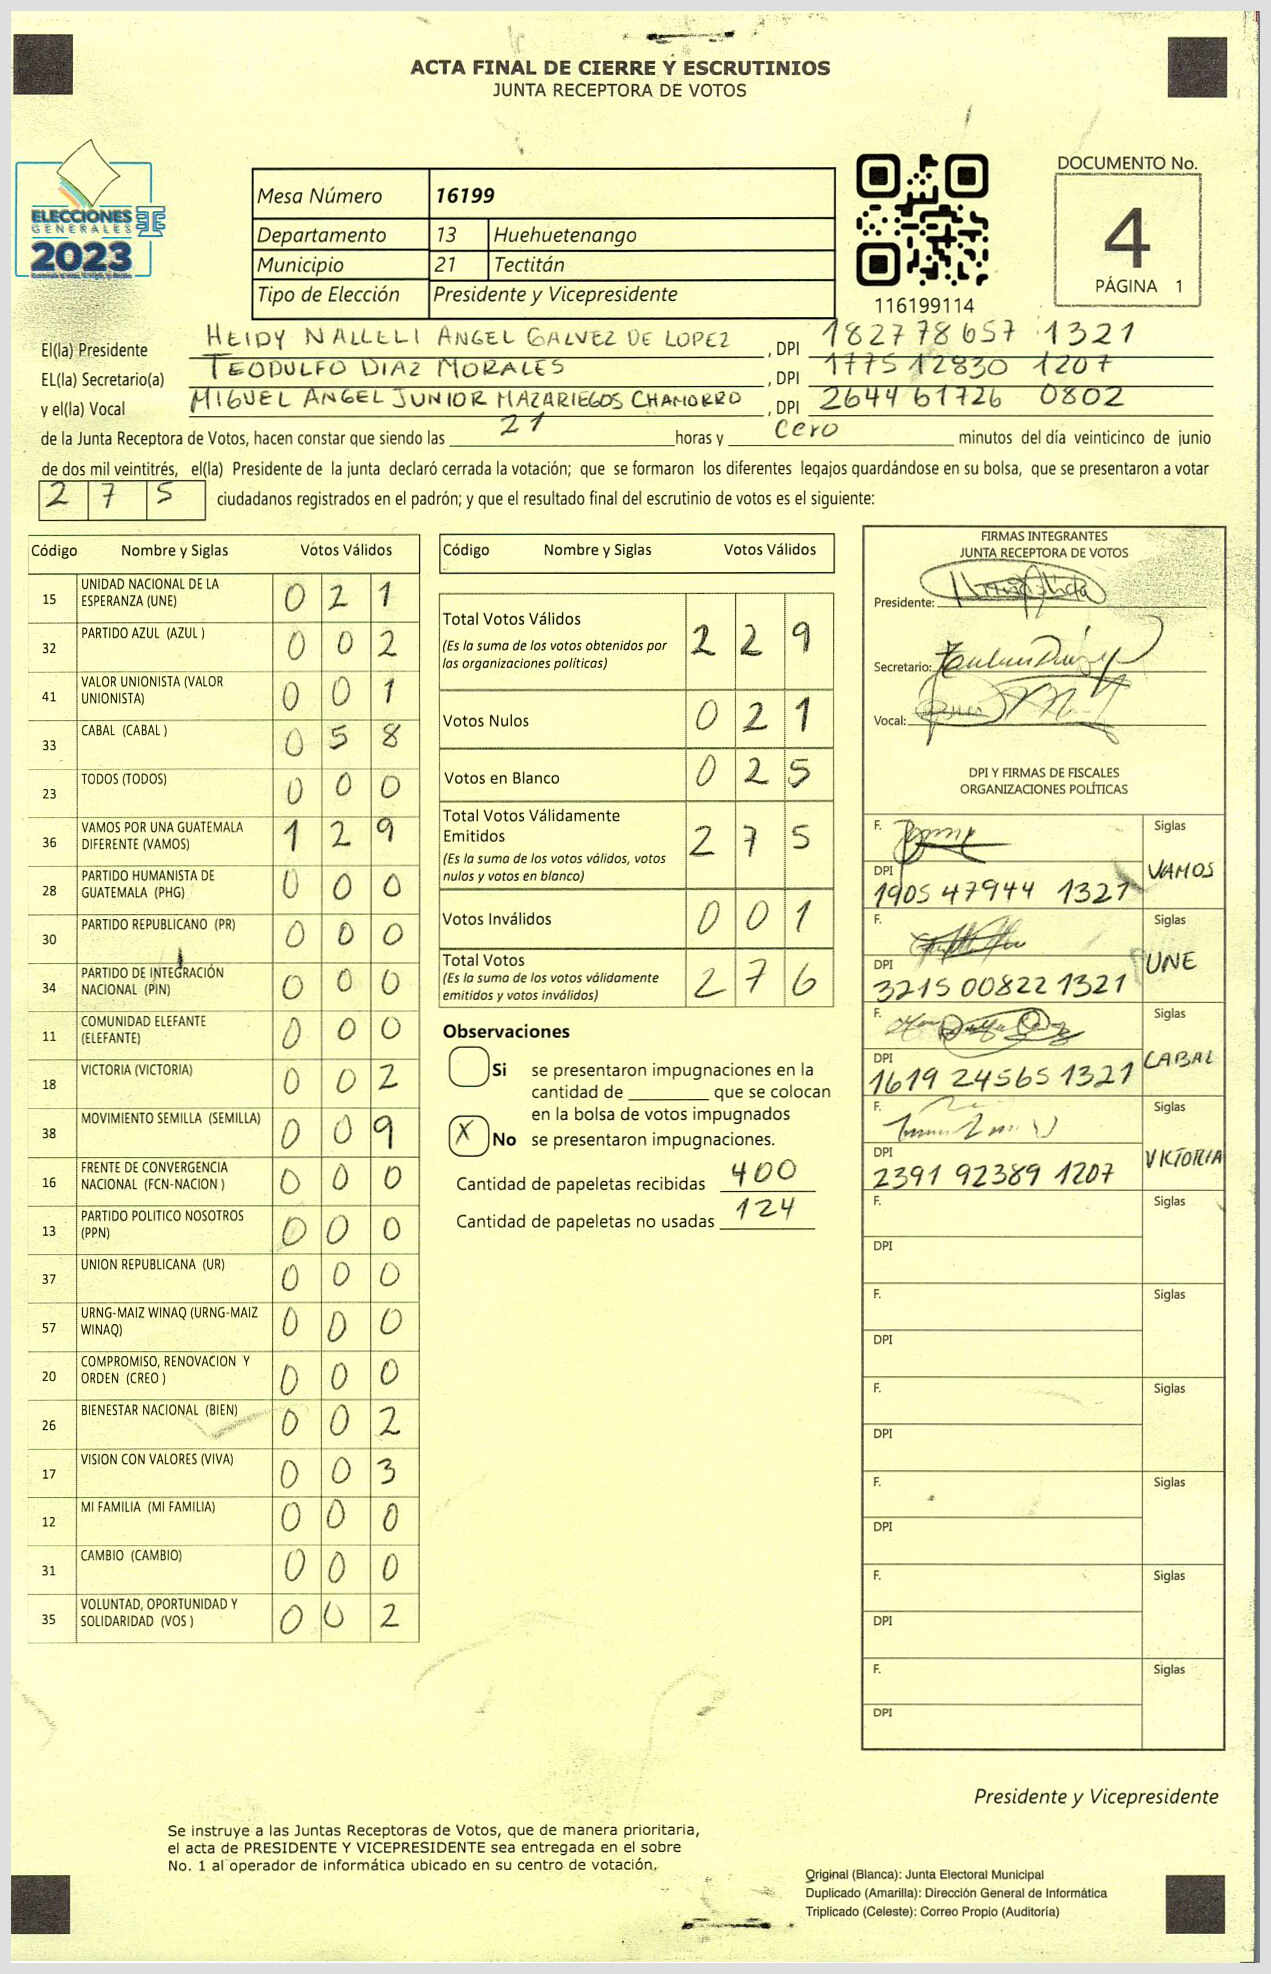 ACTA FINAL DE CIERRE Y ESCRUTINIOS
JUNTA RECEPTORA DE VOTOS
ELECCIONES
GENERALES
2023
Mesa Número 16199
Departamento 13 Huehuetenango
Municipio 21 Tectitán
Tipo de Elección Presidente y Vicepresidente
116199114
DOCUMENTO No.
4
PÁGINA 1
El(la) Presidente HEIDY NALLELI ANGEL GALVEZ DE LOPEZ , DPI 182778657 1321
EL(la) Secretario(a) TEODULFO DIAZ MORALES , DPI 177512830 1207
y el(la) Vocal MIGUEL ANGEL JUNIOR MAZARIEGOS CHAMORRO , DPI 264461726 0802
de la Junta Receptora de Votos, hacen constar que siendo las 21 horas y Cero minutos del día veinticinco de junio
de dos mil veintitrés, el(la) Presidente de la junta declaró cerrada la votación; que se formaron los diferentes legajos guardándose en su bolsa, que se presentaron a votar
2 7 5 ciudadanos registrados en el padrón; y que el resultado final del escrutinio de votos es el siguiente:
Código Nombre y Siglas Votos Válidos
15 UNIDAD NACIONAL DE LA
ESPERANZA (UNE) 0 2 1
32 PARTIDO AZUL (AZUL ) 0 0 2
41 VALOR UNIONISTA (VALOR
UNIONISTA) 0 0 1
33 CABAL (CABAL ) 0 5 8
23 TODOS (TODOS) 0 0 0
36 VAMOS POR UNA GUATEMALA
DIFERENTE (VAMOS) 1 2 9
28 PARTIDO HUMANISTA DE
GUATEMALA (PHG) 0 0 0
30 PARTIDO REPUBLICANO (PR) 0 0 0
34 PARTIDO DE INTEGRACIÓN
NACIONAL (PIN) 0 0 0
11 COMUNIDAD ELEFANTE
(ELEFANTE) 0 0 0
18 VICTORIA (VICTORIA) 0 0 2
38 MOVIMIENTO SEMILLA (SEMILLA) 0 0 9
16 FRENTE DE CONVERGENCIA
NACIONAL (FCN-NACION ) 0 0 0
13 PARTIDO POLITICO NOSOTROS
(PPN) 0 0 0
37 UNION REPUBLICANA (UR) 0 0 0
57 URNG-MAIZ WINAQ (URNG-MAIZ
WINAQ) 0 0 0
20 COMPROMISO, RENOVACION Y
ORDEN (CREO ) 0 0 0
26 BIENESTAR NACIONAL (BIEN) 0 0 2
17 VISION CON VALORES (VIVA) 0 0 3
12 MI FAMILIA (MI FAMILIA) 0 0 0
31 CAMBIO (CAMBIO) 0 0 0
35 VOLUNTAD, OPORTUNIDAD Y
SOLIDARIDAD (VOS ) 0 0 2
Código Nombre y Siglas Votos Válidos
Total Votos Válidos 2 2 9
(Es la suma de los votos obtenidos por
las organizaciones políticas)
Votos Nulos 0 2 1
Votos en Blanco 0 2 5
Total Votos Válidamente
Emitidos 2 7 5
(Es la suma de los votos válidos, votos
nulos y votos en blanco)
Votos Inválidos 0 0 1
Total Votos 2 7 6
(Es la suma de los votos válidamente
emitidos y votos inválidos)
Observaciones
Si se presentaron impugnaciones en la
cantidad de ________ que se colocan
en la bolsa de votos impugnados
X No se presentaron impugnaciones.
Cantidad de papeletas recibidas 400
Cantidad de papeletas no usadas 124
FIRMAS INTEGRANTES
JUNTA RECEPTORA DE VOTOS
Presidente:
Secretario:
Vocal:
DPI Y FIRMAS DE FISCALES
ORGANIZACIONES POLÍTICAS
F. Siglas
DPI VAMOS
1905 47944 1321
F. Siglas
DPI UNE
3215 00822 1321
F. Siglas
DPI CABAL
1619 24565 1321
F. Siglas
DPI VICTORIA
2391 92389 1207
F. Siglas
DPI
F. Siglas
DPI
F. Siglas
DPI
F. Siglas
DPI
F. Siglas
DPI
F. Siglas
DPI
Presidente y Vicepresidente
Se instruye a las Juntas Receptoras de Votos, que de manera prioritaria,
el acta de PRESIDENTE Y VICEPRESIDENTE sea entregada en el sobre
No. 1 al operador de informática ubicado en su centro de votación.
Original (Blanca): Junta Electoral Municipal
Duplicado (Amarilla): Dirección General de Informática
Triplicado (Celeste): Correo Propio (Auditoría)